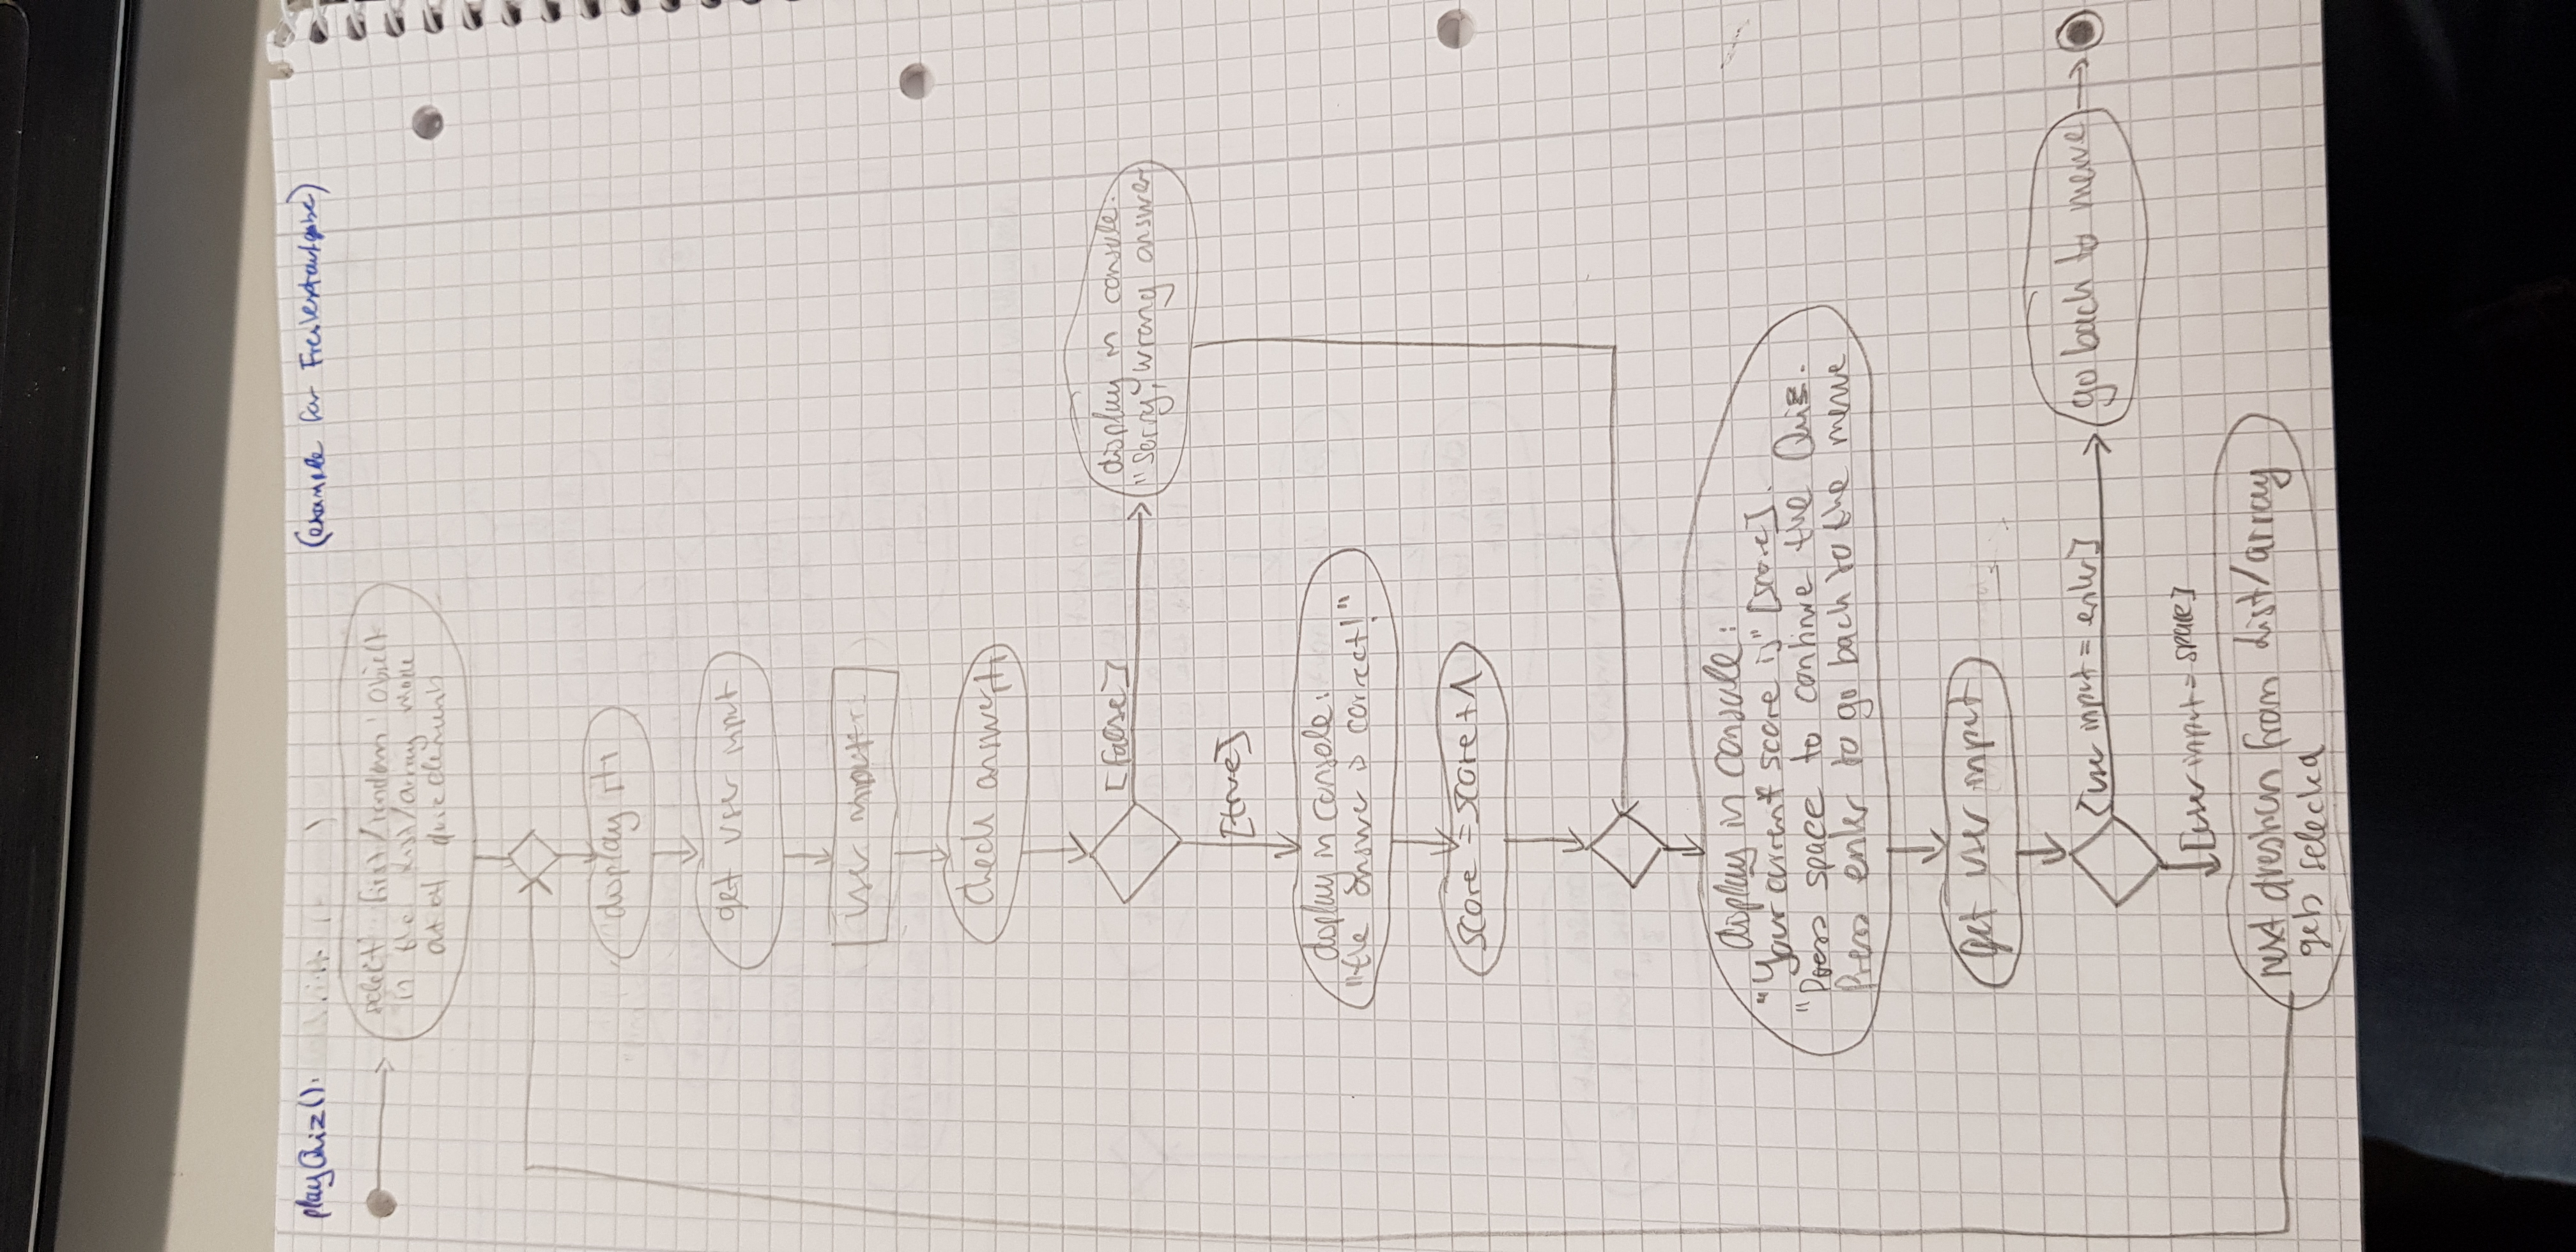 playQuiz():
(example for Freitextaufgabe)
select first/random object
in the List/array made
out of quizelements
display it
get user input
user input
check answer
[false]
display in console:
"Sorry, wrong answer
[true]
display in console:
"the answer is correct!"
score = score + 1
display in console:
"Your current score is" [score].
"Press space to continue the Quiz.
Press enter to go back to the menue
get user input
[user input = enter]
go back to menue
[user input = space]
next question from List/array
gets selected